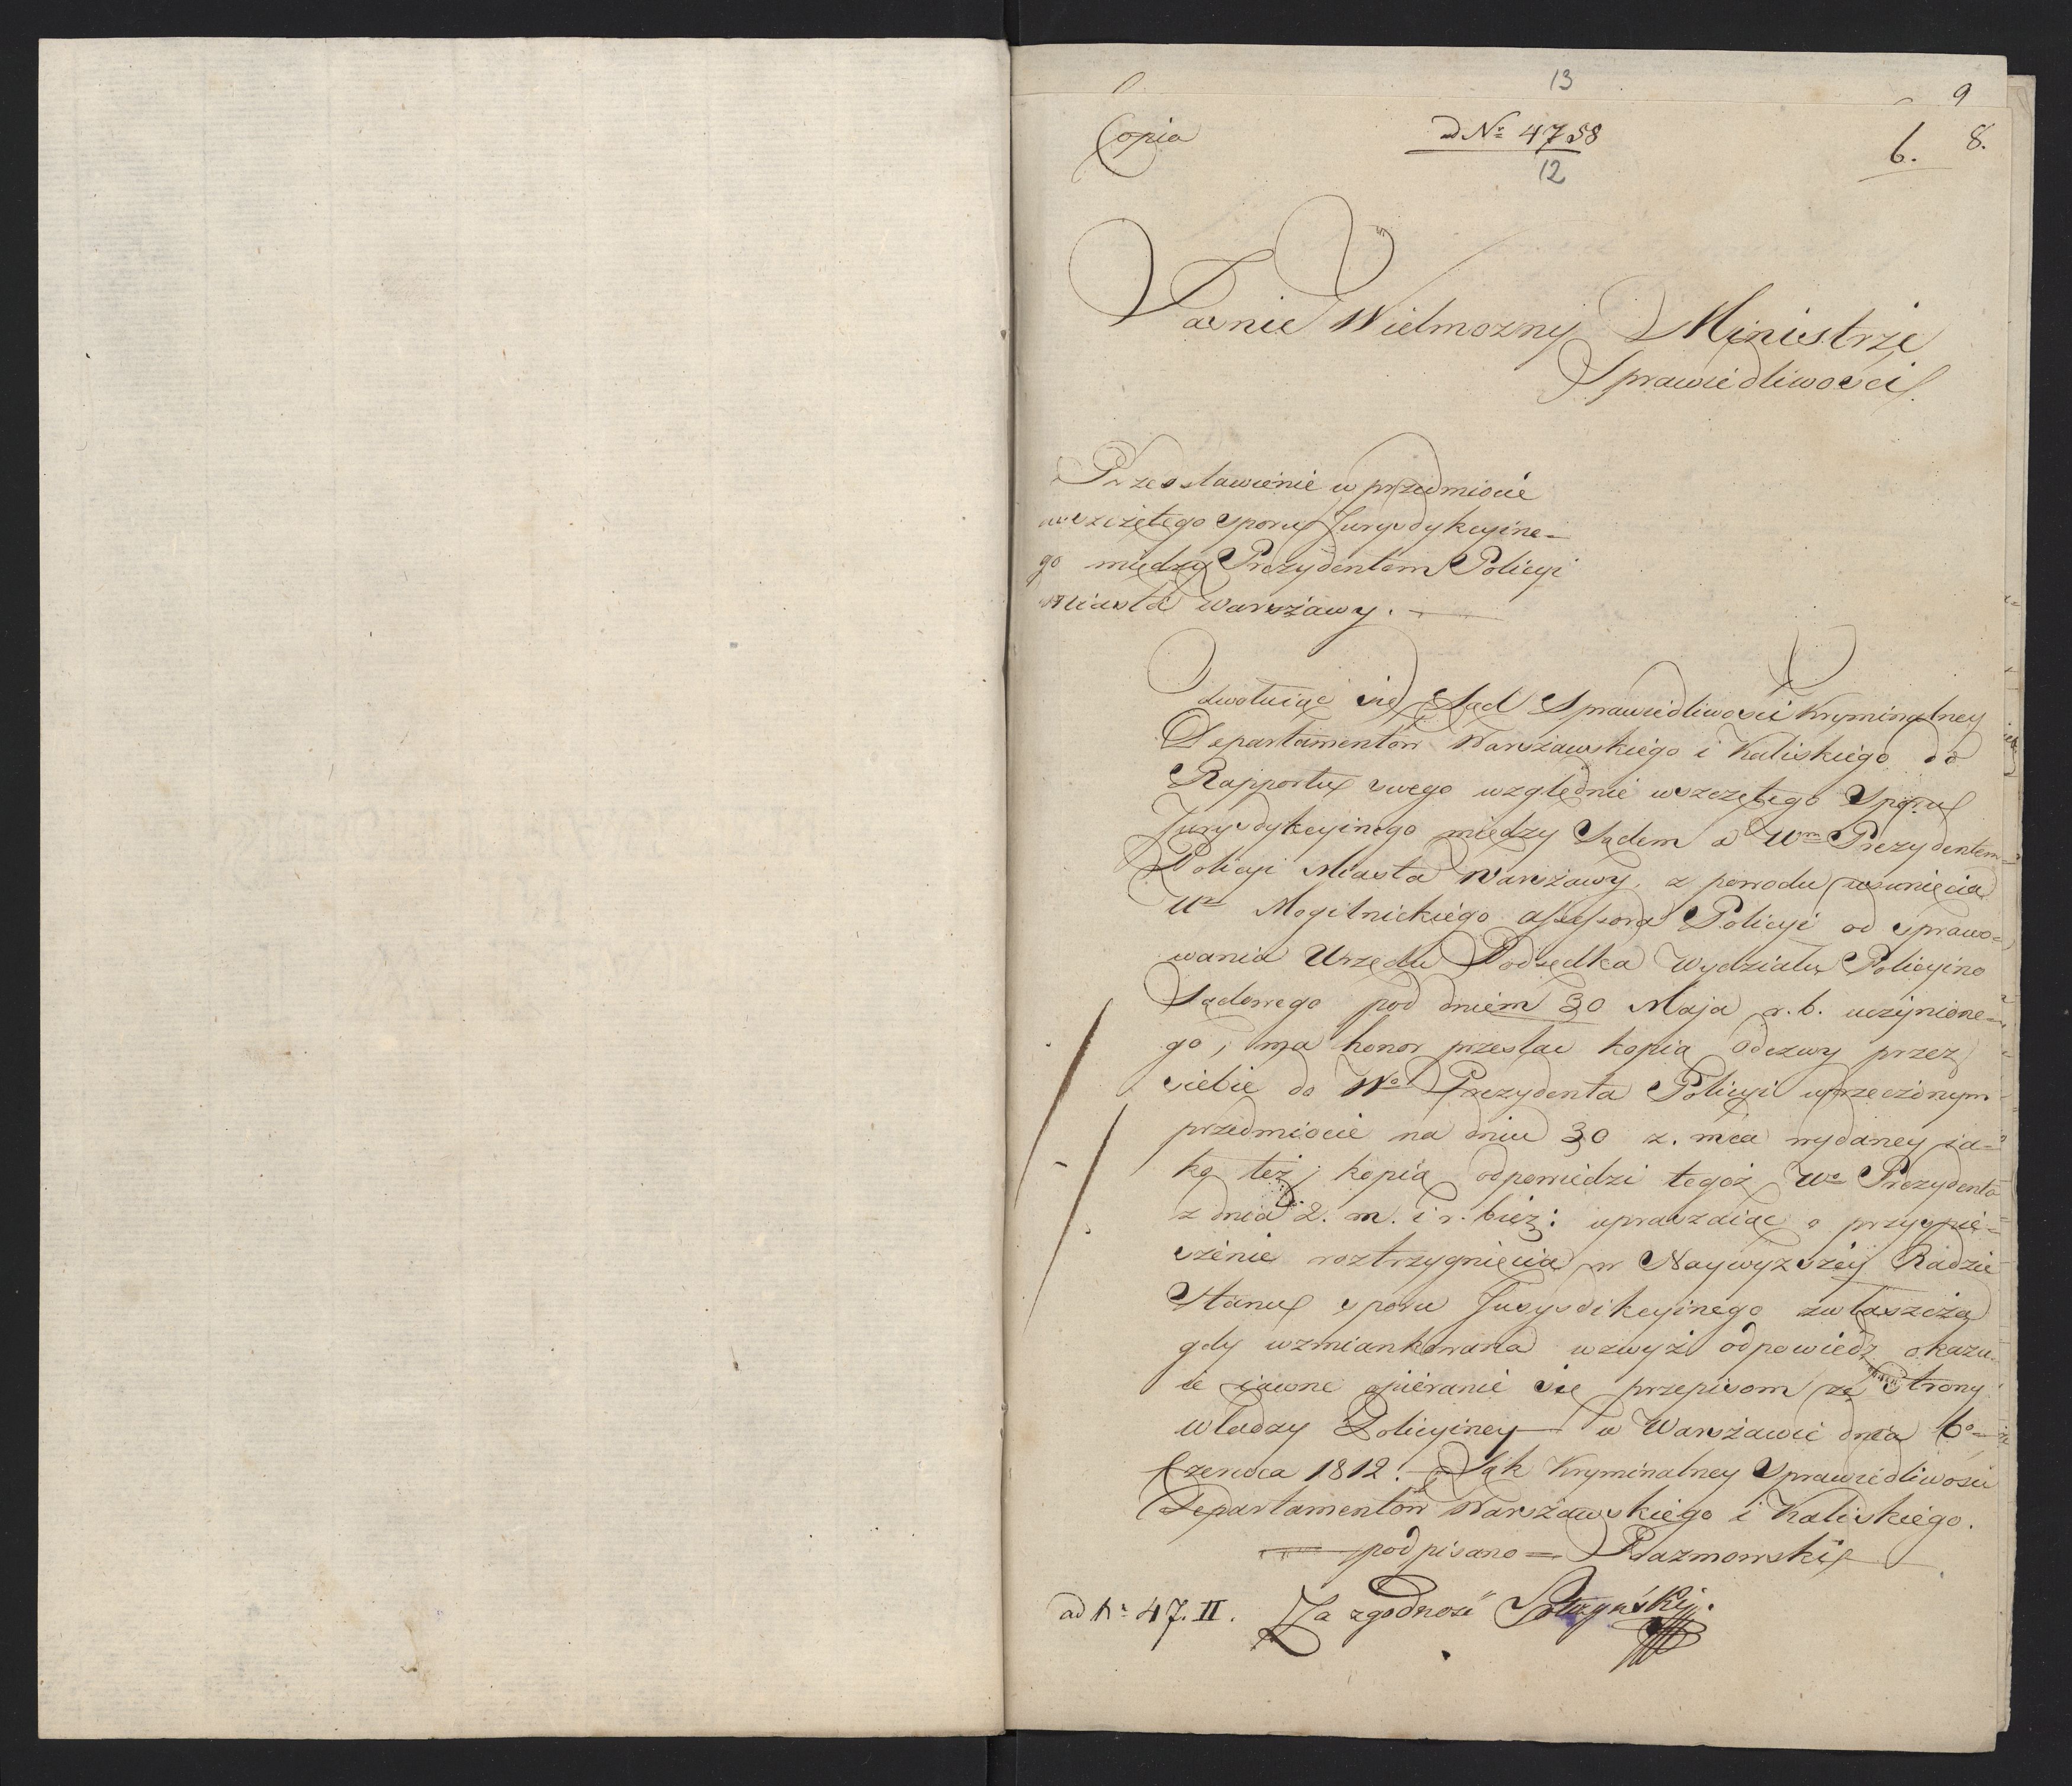 13
9
Copia
ad Nr 4758
6. 8.
12
Jaśnie Wielmożny Ministrze
Sprawiedliwości
Przedstawienie w przedmiocie
wszczętego sporu Jurysdykcyine=
go między Prezydentem Policyi
Miasta Warszawy. —
Odwołuiąc się Sąd Sprawiedliwości Kryminalney
Departamentów Warszawskiego i Kaliskiego do
Rapportu swego względnie wszczętego Sporu
Jurysdykcyinego między Sądem a Wm Prezydentem
Policyi Miasta Warszawy, z powodu usunięcia
Ur Mogilnickiego assessora Policyi od sprawo=
wania Urzędu Podsędka Wydziału Policyino
Sądowego pod dniem 30 Maja r. b. uczynione=
go, ma honor przesłać kopią odezwy przez
siebie do Wo Prezydenta Policyi w rzeczonym
przedmiocie na dniu 30 z. mca wydaney ia=
ko też, kopią odpowiedzi tegoż Wo Prezydenta
z dnia 2. m. i r. bież: upraszaiąc o przyspie=
szenie roztrzygnięcia w Naywyższey Radzie
Stanu sporu Jurysdikcyinego zwłaszcza
gdy wzmiankowana wzwyż odpowiedź okazu=
ie iawne opieranie się przepisom ze Strony
władzy Policyiney — w Warszawie dnia 6o
Czerwca 1812. — Sąd Kryminalney Sprawiedliwości
Departamentów Warszawskiego i Kaliskiego.
— podpisano = Prazmowski
ad Nr 47. II. Za zgodność